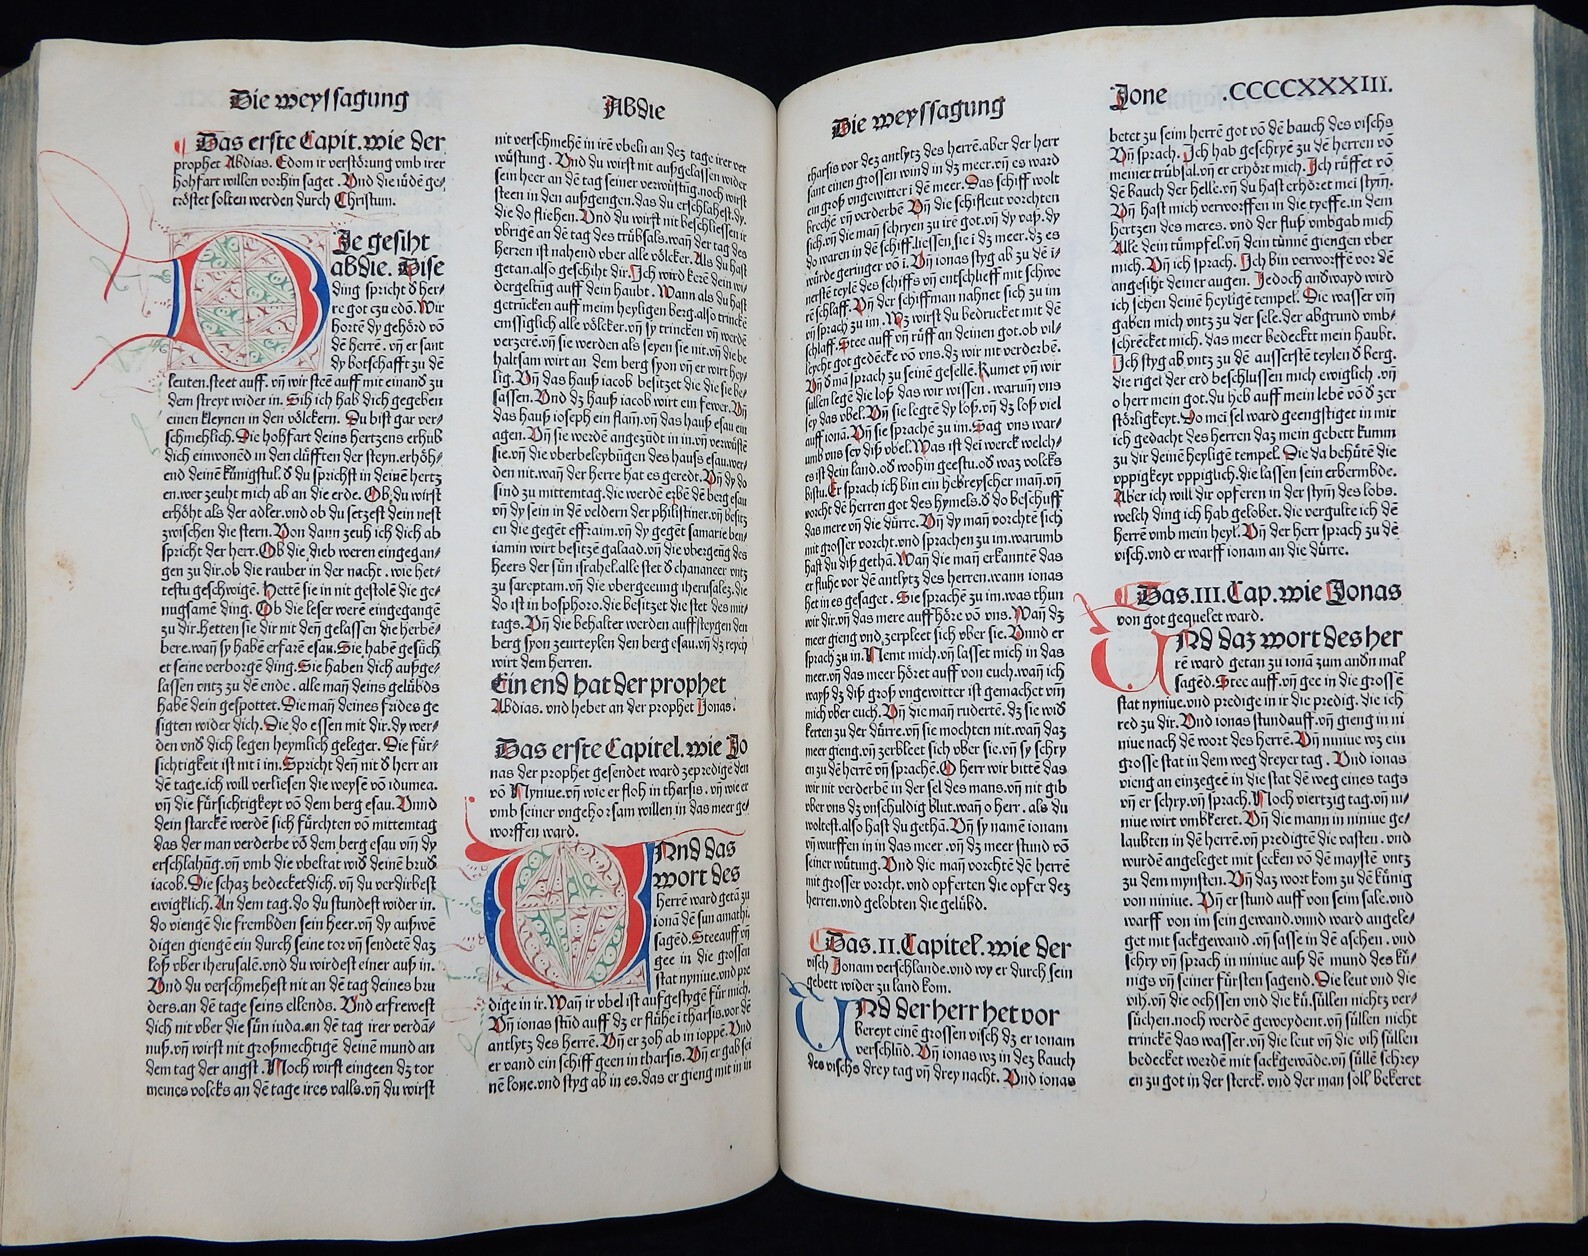 Die weyssagung
Abdie
Das erste Capit. wie der
prophet Abdias. Edom ir verstörung vmb irer
hohfart willen vorhin saget. Vnd die iüdē ge/
tröstet solten werden durch Christum.
DJe gesiht
abdie. Dise
ding spricht ð her/
re got czu edō. Wir
hortē dy gehörd vō
dē herrē. vñ er sant
dy botschafft zu dē
leuten. steet auff. vñ wir steē auff mit einanð zu
dem streyt wider in. Sih ich hab dich gegeben
einen kleynen in den völckern. Du bist gar ver/
schmehlich. Die hohfart deins hertzens erhub
dich einwonēd in den clüfften der steyn. erhöh/
end deinē künigstul. ð du sprichst in deinē hertz
en. wer zeuht mich ab an die erde. Ob du wirst
erhöht als der adler. vnd ob du setzest dein nest
zwischen die stern. Von dann zeuh ich dich ab
spricht der herr. Ob die dieb weren eingegan/
gen zu dir. ob die rauber in der nacht. wie het/
testu geschwigē. Hettē sie in nit gestolē die ge/
nugsamē ding. Ob die leser werē eingegangē
zu dir. hetten sie dir nit deñ gelassen die herbē/
bere. wañ sy habē erfarē esau. Sie habē gesuch
et seine verborgē ding. Sie haben dich außge/
lassen vntz zu dē ende. alle mañ deins gelübds
habē dein gespottet. Die mañ deines frides ge
sigten wider dich. Die do essen mit dir. dy wer/
den vnð dich legen heymlich geleger. Die für/
sichtigkeit ist nit i im. Spricht deñ nit ð herr an
dē tage. ich will verliesen die weysē vō idumea.
vñ die fürsichtigkeyt vō dem berg esau. Vnnd
dein starckē werdē sich fürchten vō mittemtag
das der man verderbe vō dem berg esau vñ dy
erschlahūg. vñ vmb die vbeltat wid deinē brud
iacob. Die schaz bedecket dich. vñ du verdirbest
ewigklich. An dem tag. do du stundest wider in.
do viengē die frembden sein heer. vñ dy außwē
digen giengē ein durch seine tor vñ sendetē daz
loß vber iherusalē. vnd du wirdest einer auß in.
Vnd du verschmehest nit an dē tag deines bru
ders. an dē tage seins ellends. Vnd erfrewest
dich nit vber die sün iuda. an dē tag irer verdā/
nuß. vñ wirst nit großmechtigē deinē mund an
dem tag der angst. Noch wirst eingeen dz tor
meines volcks an dē tage ires valls. vñ du wirst
nit verschmehē in irē vbeln an dez tage irer ver
wüstung. Vnd du wirst nit außgelassen wider
sein heer an dē tag seiner verwüstūg. noch wirst
steen in den außgengen. das du erschlahest. dy.
die do fliehen. Vnd du wirst nit beschliessen ir
vbrigē an dē tag des trübsals. wañ der tag des
herzen ist nahend vber alle völcker. Als du hast
getan. also geschiht dir. Jch wird kerē dein wi/
dergeltūg auff dein haubt. Wann als du hast
getrücken auff meim heyligen berg. also trinckē
emssiglich alle völcker. vñ sy trincken vñ werdē
verzerē. vñ sie werden als seyen sie nit. vñ die be
haltsam wirt an dem berg syon vñ er wirt hey/
lig. Vñ das hauß iacob besitzet die die sie be/
sassen. Vnd dz hauß iacob wirt ein fewer. Vñ
das hauß ioseph ein flam̄. vñ das hauß esau ein
agen. Vñ sie werdē angezūdt in in. vñ verwüstē
sie. vñ die vberbeleybūgen des hauß esau. wer/
den nit. wañ der herre hat es geredt. Vñ dy do
sind zu mittemtag. die werdē erbē dē berg esau
vñ dy sein in dē veldern der philistiner. vñ besitz
en die gegēt effraim. vñ dy gegēt samarie ben/
iamin wirt besitzē galaad. vñ die vbergeūg des
heers der sün israhel. alle stet ð chananeer vntz
zu sareptam. vñ die vbergeeung iherusalez. die
do ist in bosphoro. die besitzet die stet des mit/
tags. Vñ die behalter werden auffsteygen den
berg syon zeurteylen den berg esau. vñ dz reych
wirt dem herren.
Ein end hat der prophet
Abdias. vnd hebet an der prophet Jonas.
Das erste Capitel. wie Jo
nas der prophet gesendet ward zepredigē den
vō Nyniue. vñ wie er floh in tharsis. vñ wie er
vmb seiner vngehorsam willen in das meer ge/
worffen ward.
VNd das
wort des
herrē ward getā zu
ionā dē sun amathi.
sagēd. Stee auff vñ
gee in die grossen
stat nyniue. vnd pre
dige in ir. Wañ ir vbel ist aufgestygē für mich.
Vñ ionas stūd auff dz er flühe i tharsis. vor dē
antlytz des herrē. Vñ er zoh ab in ioppē. Vnd
er vand ein schiff geen in tharsis. Vñ er gab sei
nē lone. vnd styg ab in es. das er gieng mit in in
Die weyssagung
Jone .CCCCXXXIII.
tharsis vor dez antlytz des herrē. aber der herr
sant einen grossen wind in dz meer. vñ es ward
ein groß vngewitter i dē meer. Das schiff wolt
brechē vñ verderbē Vñ die schifleut vorchten
sich. vñ die mañ schryen zu irē got. vñ dy vaß. dy
do waren in dē schiff. liessen. sie i dz meer. dz es
würde geringer vō i. Vñ ionas styg ab zu dē i/
nerstē teylē des schiffs vñ entschlieff mit schwe
rē schlaff. Vñ der schiffman nahnet sich zu im
vñ sprach zu im. Wz wirst du bedrucket mit dē
schlaff. Stee auff vñ rüff an deinen got. ob vil/
leycht got gedēcke vō vns. dz wir nit verderbē.
Vñ ð mā sprach zu seinē gesellē. Kumet vñ wir
süllen legē die loß das wir wissen. warum̄ vns
sey das vbel. Vñ sie legtē dy loß. vñ dz loß viel
auff ionā. Vñ sie sprachē zu im. Sag vns war/
umb vns sey diß vbel. Was ist dei werck welch/
es ist dein land. oð wohin geestu. oð waz volcks
bistu. Er sprach ich bin ein hebreyscher mañ. vñ
vorcht dē herren got des hymels. ð do beschuff
das mere vñ die dürre. Vñ dy mañ vorchtē sich
mit grosser vorcht. vnd sprachen zu im. warumb
hast du diß gethā. Wañ die mañ erkanntē das
er fluhe vor dē antlytz des herren. wann ionas
het in es gesaget. Sie sprachē zu im. was thun
wir dir. vñ das mere auff höre vō vns. Wañ dz
meer gieng vnd zerpleet sich vber sie. Vnnd er
sprach zu in. Nemt mich. vñ lasset mich in das
meer. vñ das meer höret auff von euch. wañ ich
wayß dz diß groß vngewitter ist gemachet vm̄
mich vber euch. Vñ die mañ rudertē. dz sie wið
kerten zu der dürre. vñ sie mochten nit. wañ daz
meer gieng. vñ zerbleet sich vber sie. vñ sy schry
en zu dē herrē vñ sprachē. O herr wir bittē das
wir nit verderbē in der sel des mans. vñ nit gib
vber vns dz vnschuldig blut. wañ o herr. als du
woltest. also hast du gethā. Vñ sy namē ionam
vñ wurffen in in das meer. vñ dz meer stund vō
seiner wütung. Vnd die mañ vorchtē dē herrē
mit grosser vorcht. vnd opferten die opfer dez
herren. vnd gelobten die gelübd.
Das .II. Capitel. wie der
visch Jonam verschlande. vnd wy er durch sein
gebett wider zu land kom.
VNd der herr het vor
bereyt einē grossen visch dz er ionam
verschlūd. Vñ ionas wz in dez bauch
des vischs drey tag vñ drey nacht. Vnd ionas
betet zu seim herrē got vō dē bauch des vischs
Vñ sprach. Jch hab geschryē zu dē herren vō
meiner trübsal. vñ er erhört mich. Jch rüffet vō
dē bauch der helle. vñ du hast erhöret mei stym̄.
Vñ hast mich verworffen in die tyeffe. in dem
hertzen des meres. vnd der fluß vmbgab mich
Alle dein tümpfel. vñ dein tünnē giengen vber
mich. Vñ ich sprach. Jch bin verworffē vor dē
angesiht deiner augen. Jedoch andwayd wird
ich sehen deinē heyligē tempel. Die wasser vm̄
gaben mich vntz zu der sele. der abgrund vmb/
schrecket mich. das meer bedeckt mein haubt.
Jch styg ab vntz zu dē ausserstē teylen ð berg.
die rigel der erd beschlussen mich ewiglich. vñ
o herr mein got. du heb auff mein lebē vō ð zer
störligkeyt. Do mei sel ward geengstiget in mir
ich gedacht des herren daz mein gebett kumm
zu dir deinē heyligē tempel. Die da behütē die
vppigkeyt vppiglich. die lassen sein erbermbde.
Aber ich will dir opferen in der stym̄ des lobs.
welch ding ich hab gelobet. die vergulte ich dē
herrē vmb mein heyl. Vñ der herr sprach zu dē
visch. vnd er warff ionam an die dürre.
Das .III. Cap. wie Jonas
von got gequelet ward.
VNd daz wort des her
rē ward getan zu ionā zum andn mal
sagēd. Stee auff. vñ gee in die grossē
stat nyniue. vnd predige in ir die predig. die ich
red zu dir. Vnd ionas stund auff. vñ gieng in ni
niue nach dē wort des herrē. Vñ niniue wz ein
grosse stat in dem weg dreyer tag. Vnd ionas
vieng an einzegeē in die stat dē weg eines tags
vñ er schry. vñ sprach. Noch viertzig tag. vñ ni/
niue wirt vmbkeret. Vñ die mann in niniue ge/
laubten in dē herrē. vñ predigtē die vasten. vnd
wurdē angeleget mit secken vō dē maystē vntz
zu dem mynsten. Vñ daz wort kom zu dē künig
von niniue. Vñ er stund auff von seim sale. vnd
warff von im sein gewand. vnnd ward angele/
get mit sackgewand. vñ sasse in dē aschen. vnd
schry vñ sprach in niniue auß dē mund des kü/
nigs vñ seiner fürsten sagend. Die leut vnd die
vih. vñ die ochssen vnd die kü. süllen nichtz ver/
süchen. noch werdē geweydent. vñ süllen nicht
trinckē das wasser. vñ die leut vñ die vih süllen
bedecket werdē mit sackgewādē. vñ süllē schrey
en zu got in der sterck. vnd der man soll bekeret